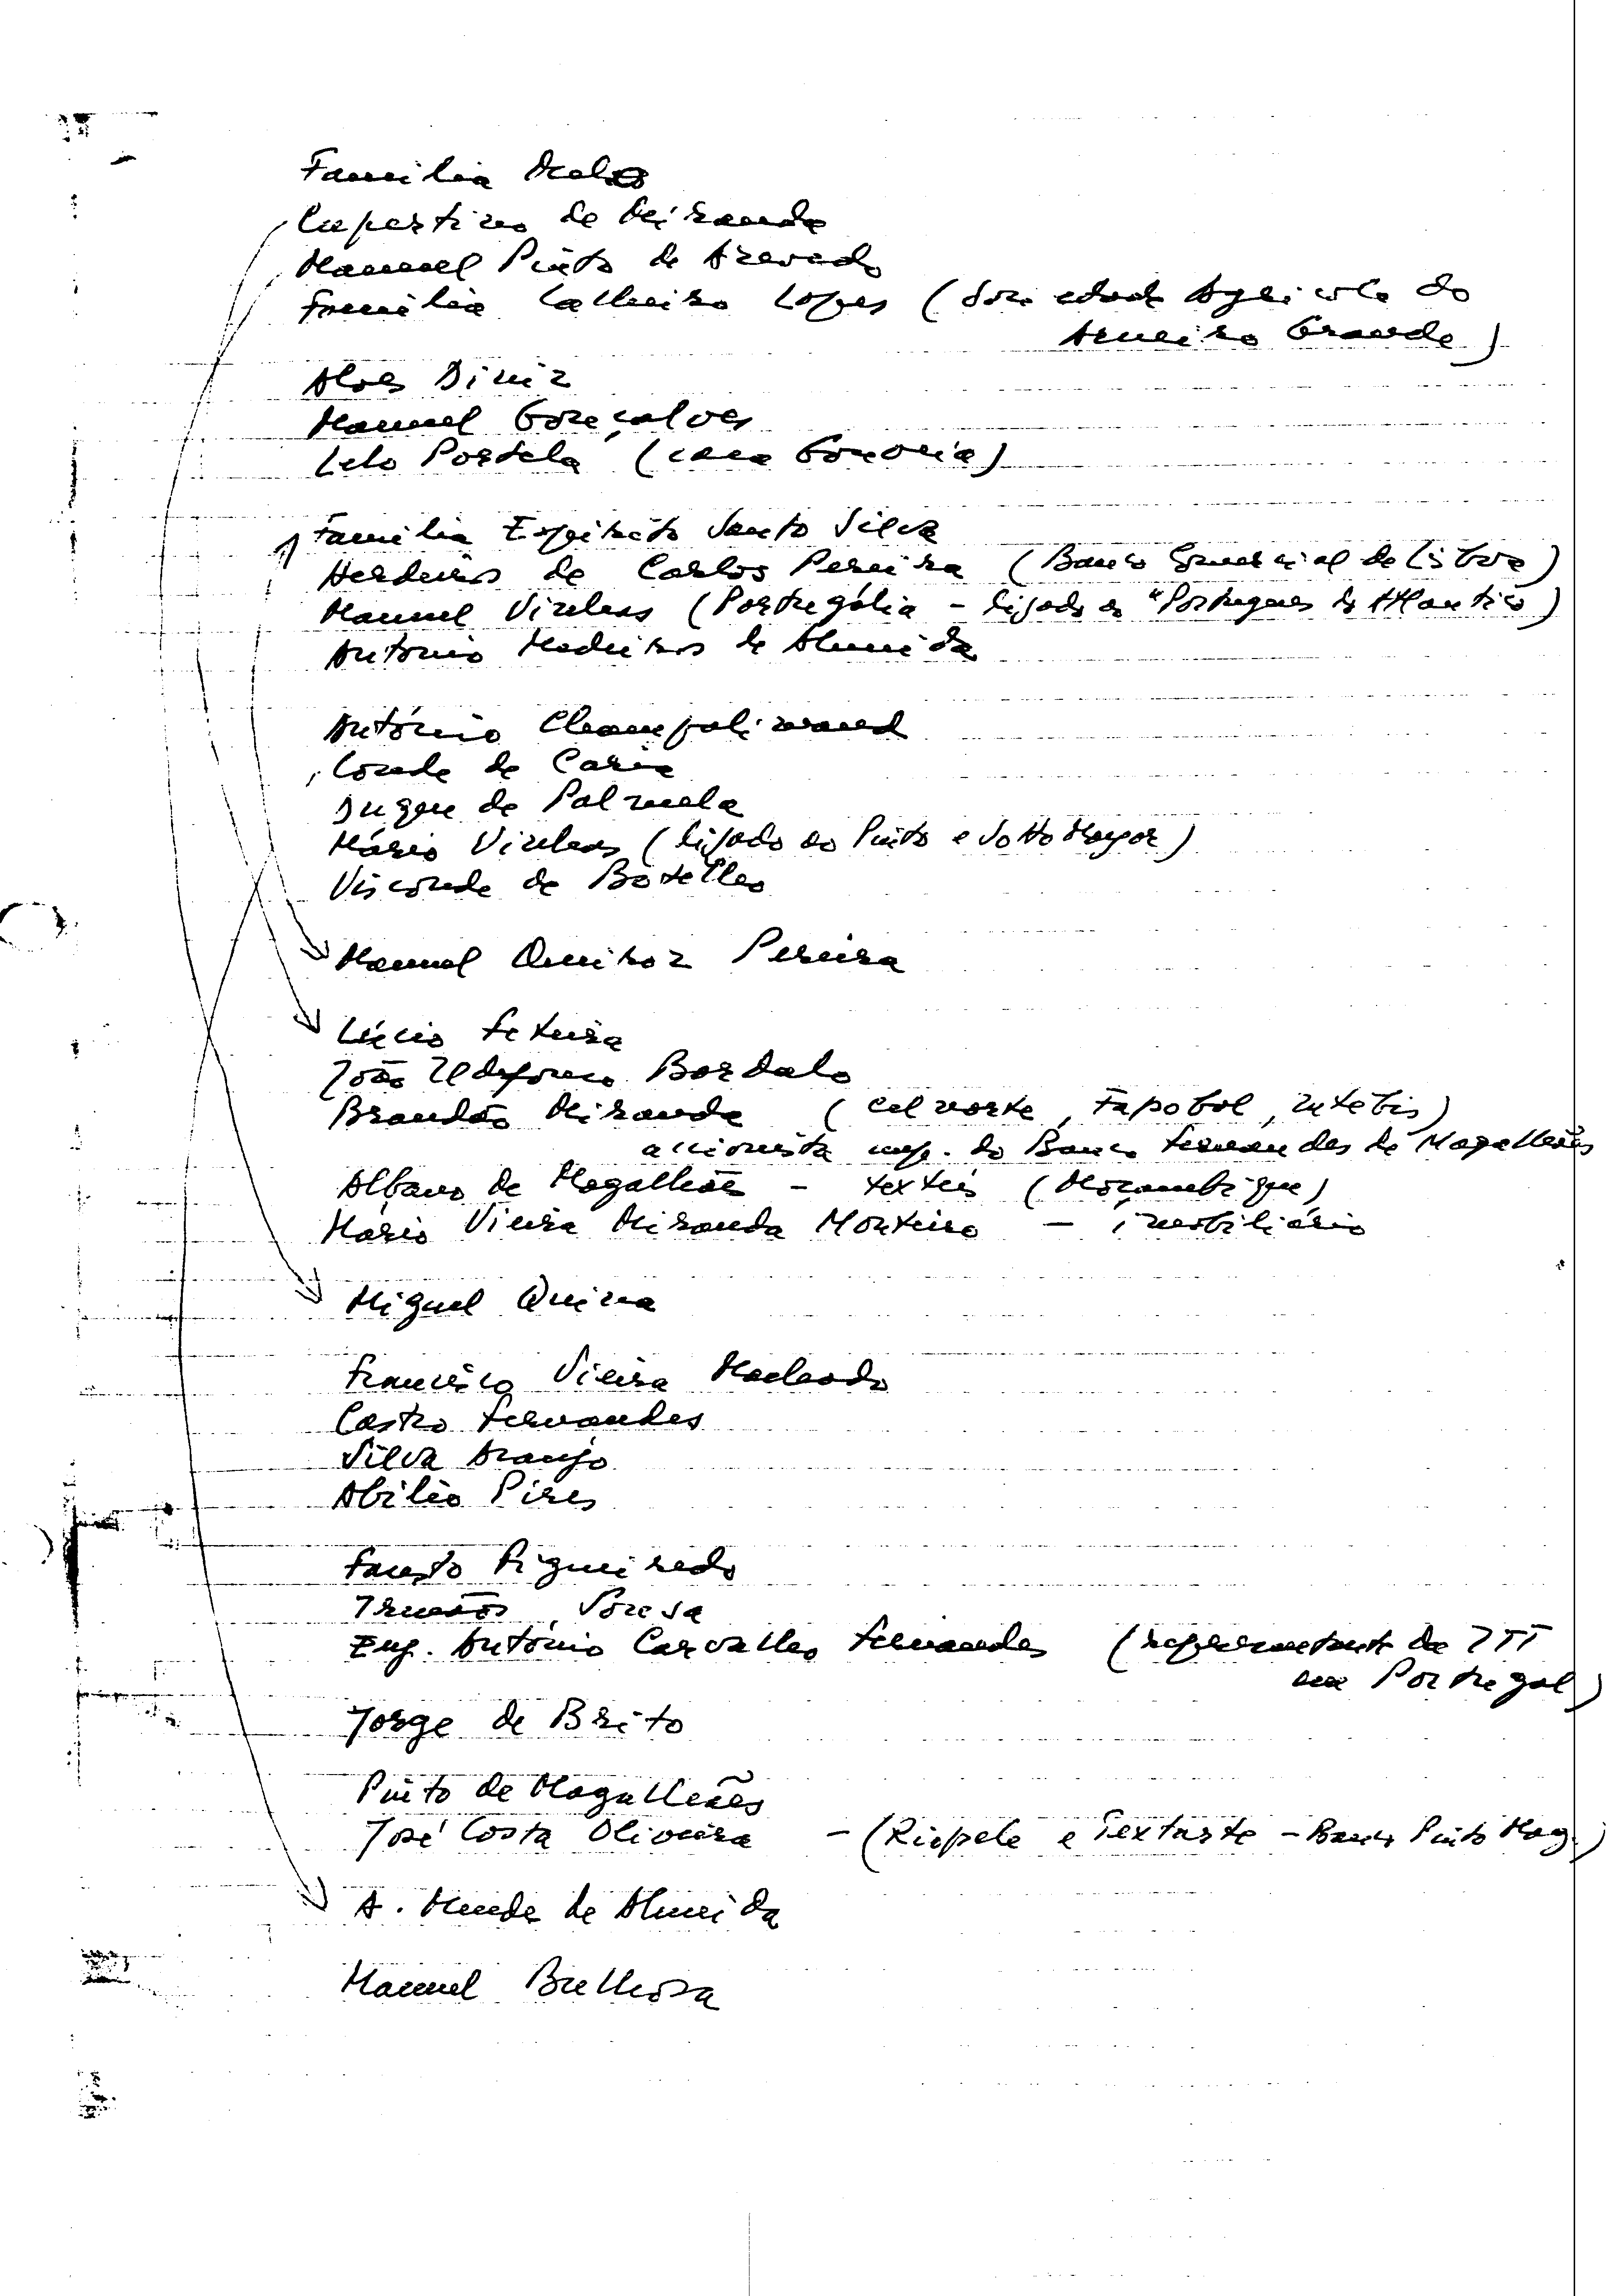 Familia Mello
Cupertino de Miranda
Manuel Pinto de Azevedo
Familia Calheiro Lopes (Sociedade Agricola do
Arneiro Grande)
Alves Diniz
Manuel Gonçalves
Lelo Portela (casa Gouveia)
Familia Espirito Santo Silva
Herdeiros de Carlos Pereira (Banco Comercial de Lisboa)
Manuel Vinhas (Portugália - ligado ao "Portugues do Atlantico)
Antonio Medeiros de Almeida
António Champalimaud
Conde de Caria
Duque de Palmela
Mário Vinhas (ligado ao Pinto e Sotto Mayor)
Visconde de Botelho
Manuel Queiroz Pereira
Lúcio Feteira
João Ildefonso Bordalo
Brandão Miranda (Celnorte, Fapobol, Intebis)
accionista imp. do Banco Fernandes de Magalhães
Albano de Magalhães - texteis (Moçambique)
Mário Vieira Miranda Monteiro - imobiliário
Miguel Quina
Francisco Vieira Machado
Castro Fernandes
Silva Araujo
Abilio Pires
Fausto Figueiredo
Irmãos Sousa
Eng. António Carvalho Fernandes (representante da ITT
em Portugal)
Jorge de Brito
Pinto de Magalhães
José Costa Oliveira - (Riopele e Textarte - Banco Pinto Mag.)
A. Mende de Almeida
Manuel Bulhosa